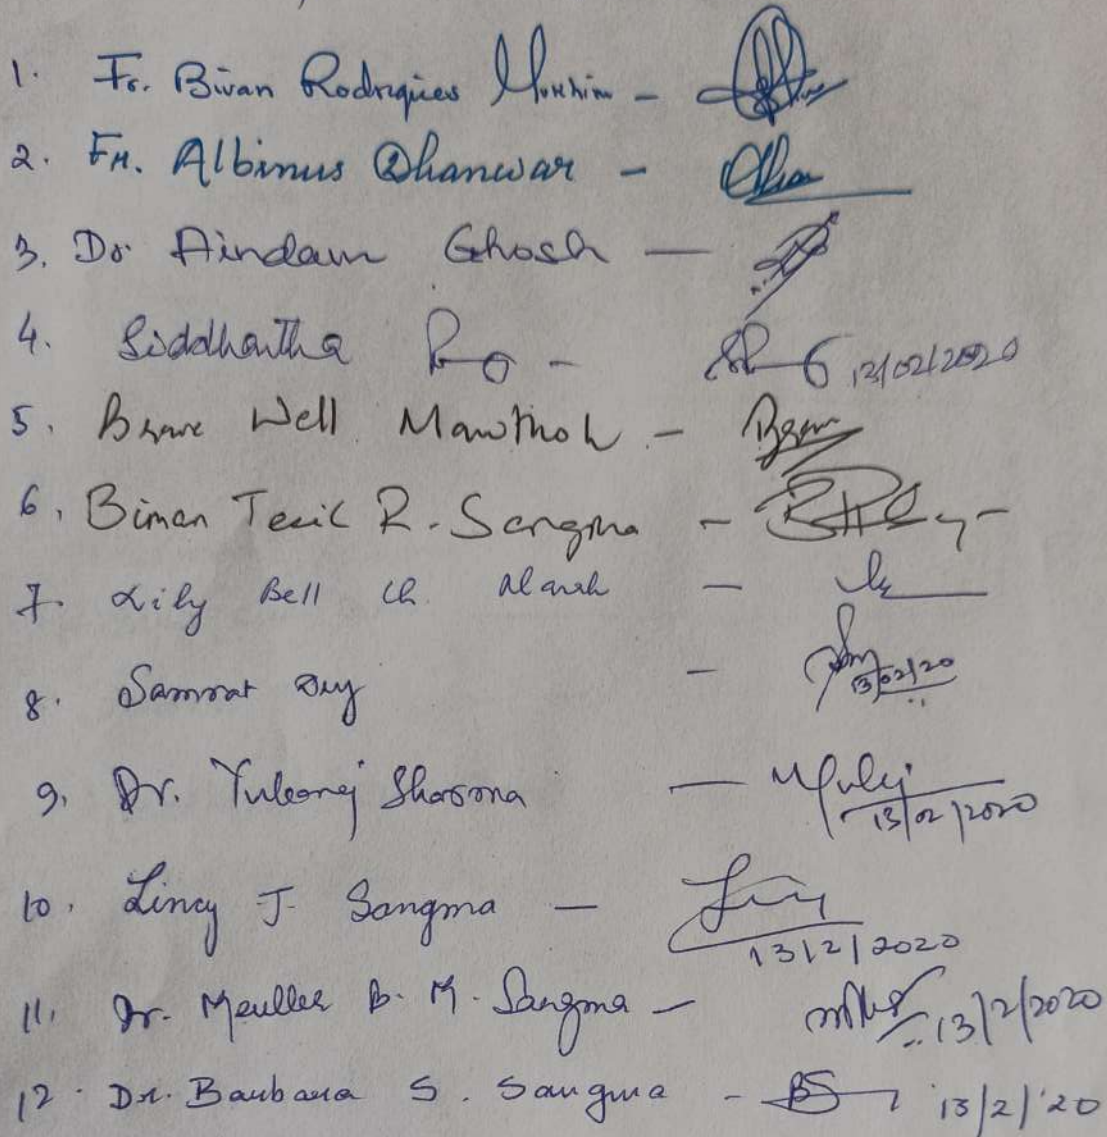 1. Fr. Bivan Rodriques Mukhim -
2. Fr. Albinus Dhanwar -
3. Dr Arindam Ghosh -
4. Siddhartha - 12/02/2020
5. Brave Well Mawthoh -
6. Biman Tesil R. Sangma -
7. Lily Bell Ch. Marak -
8. Samrat Dey - 13/02/20
9. Dr. Yubaraj Sharma - 13/02/2020
10. Lincy J. Sangma - 13/2/2020
11. Dr. B. M. Sangma - 13/2/2020
12. Dr. Barbara S. Sangma - BS 13/2/'20